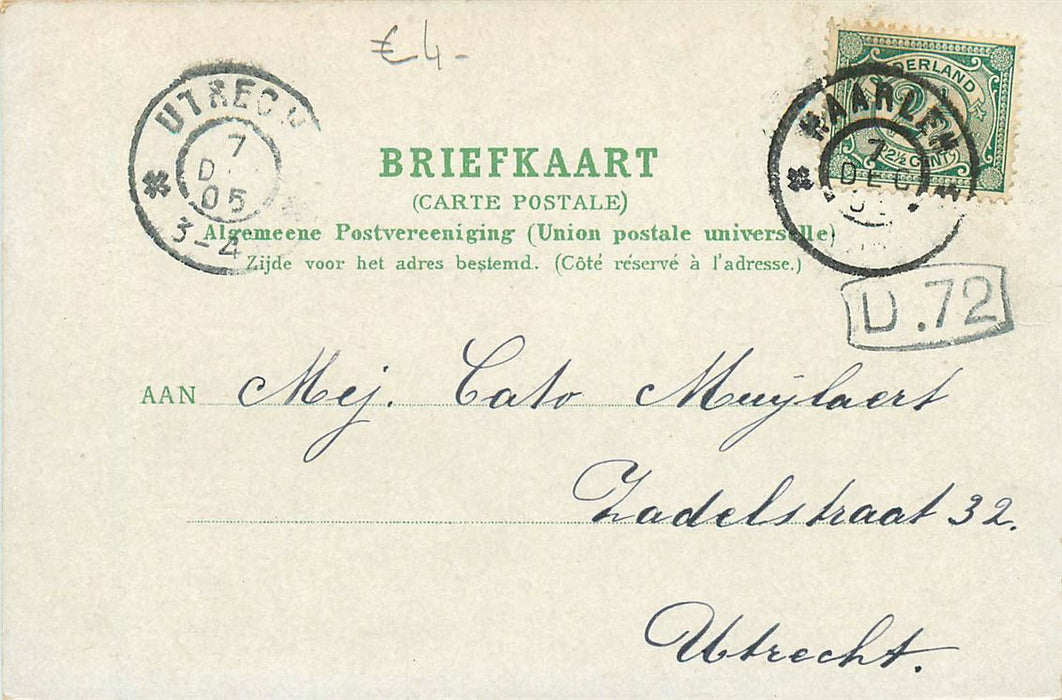 € 4-
UTRECH
7
D
05
3-4
NEDERLAND
2½ CENT
HAARLEM
7
DEC
BRIEFKAART
(CARTE POSTALE)
Algemeene Postvereeniging (Union postale universelle)
Zijde voor het adres bestemd. (Côté réservé à l'adresse.)
D.72
AAN Mej. Cato Muÿlaert
Zadelstraat 32.
Utrecht.